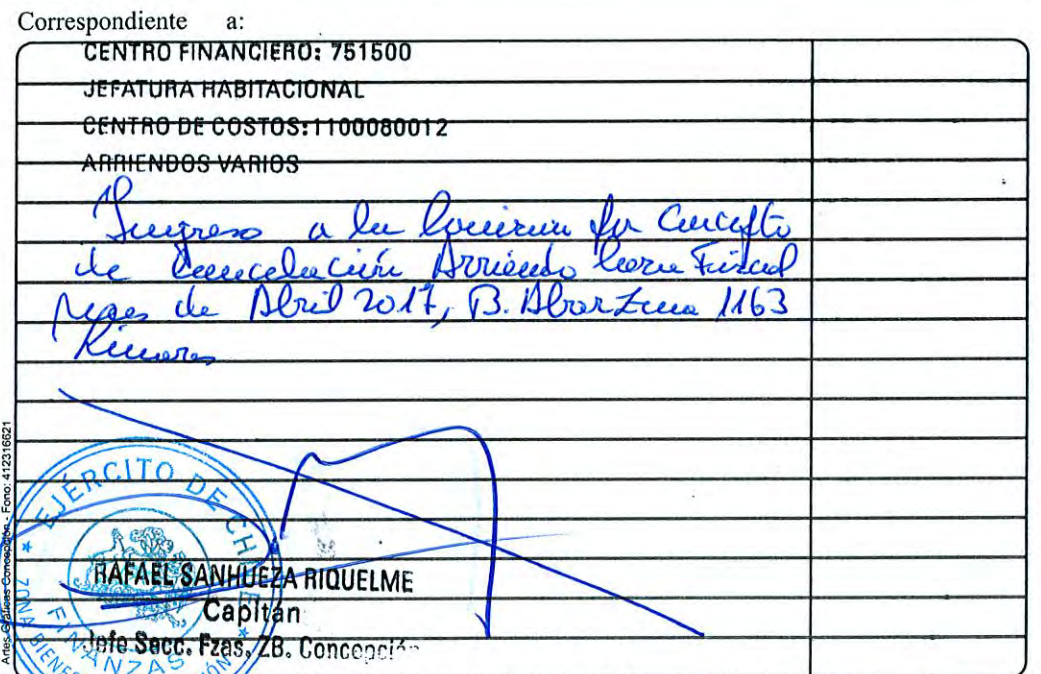 Correspondiente a:
CENTRO FINANCIERO: 751500
JEFATURA HABITACIONAL
CENTRO DE COSTOS: 1100080012
ARRIENDOS VARIOS
Ingreso a la por Concepto
de Cancelación Arriendo Casa Fiscal
mes de Abril 2017, B. Abarzua 1163
Linares
EJÉRCITO DE CHILE
FINANZAS
RAFAEL SANHUEZA RIQUELME
Capitán
Jefe Secc. Fzas. ZB. Concepción
Artes Gráficas Concepción - Fono: 412316621